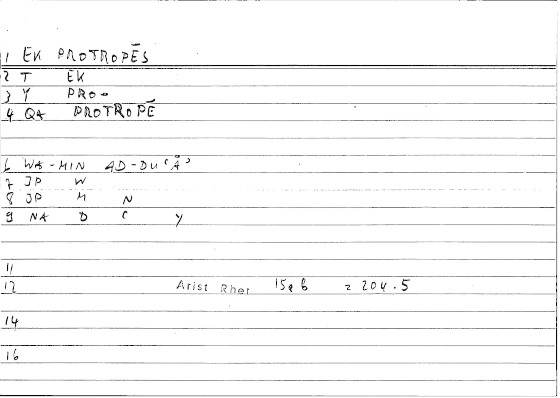 1 EK PROTROPĒS
2 T EK
3 Y PRO-
4 QA PROTROPĒ
6 WA-MIN AD-DUʿĀʾ
7 JP W
8 JP M N
9 NA D C Y
11
12 Arist Rhet 15a6 = 204.5
14
16